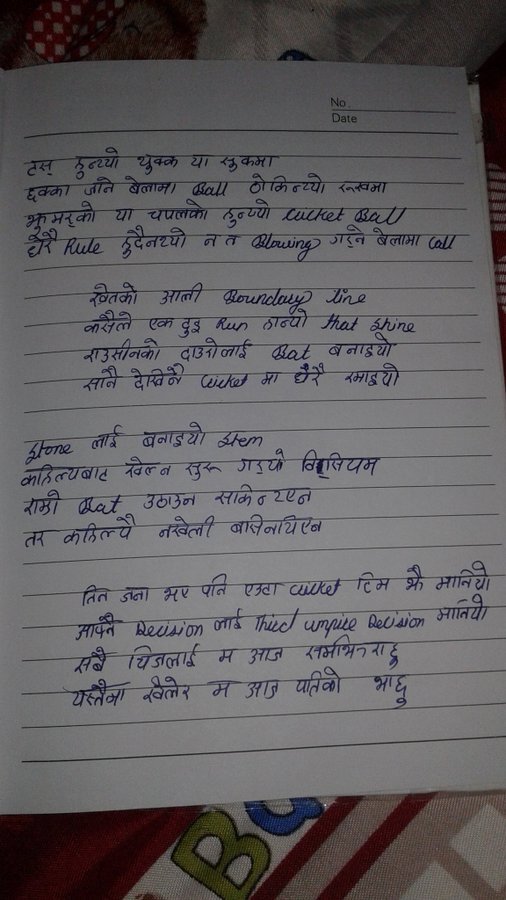 No
Date
टस् हुन्थ्यो थुक्क या सुक्मा
छक्का जाने बेलामा Ball ठोकिन्थ्यो रूखमा
को या चपलको हुन्थ्यो Cricket Ball
धेरै Rule हुदैनथ्यो न त Blowing गर्ने बेलामा Call
खेतको आली Boundary line
कसैले एक दुइ Run हान्यो that shine
दाउरोलाई Bat बनाइयो
सानै देखिनै Cricket मा धेरै रमाइयो
Stone लाई बनाइयो Stem
कहिल्यबाट खेल्न सुरू गइयो
राम्रो Bat उठाउन सकिन्थ्एन
तर कहिल्यै नखेली बसिनथिएन
तिन जना भए पनि एउटा Cricket टिम झै मानियो
आफ्नै Decision लाई Third umpire Decision मानियो
सबै चिजलाई म आज सम्झि राहु
यस्तैमा खेलेर म आज यतिको भाछु